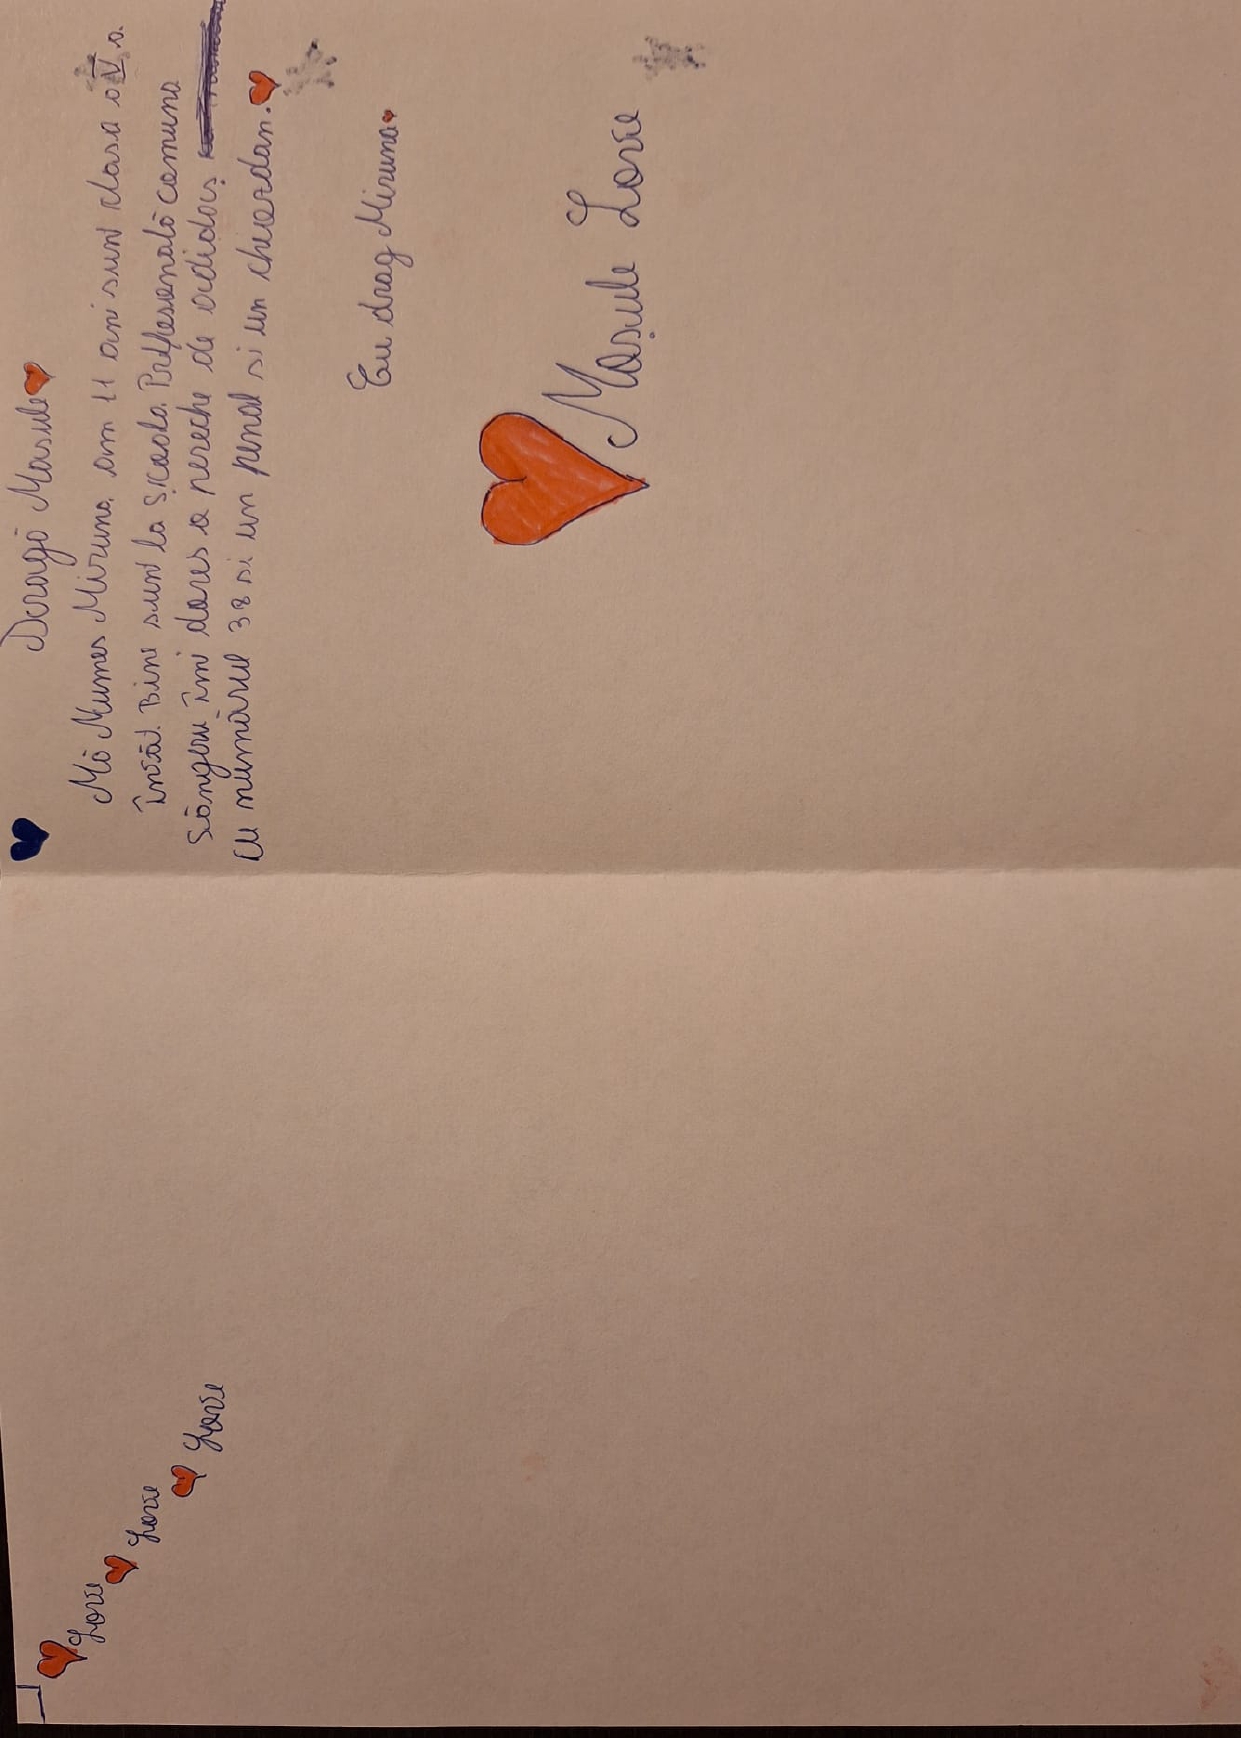 Dragă Moșule
Mă Numes Miruna. am 11 ani sunt clasa a V a.
învăț Bine sunt la Școala Profesonală comuna
Sângeru îmi dores o pereche de adidași
cu numărul 38 si un penal si un cheordan.
Cu drag Miruna.
Moșule Love
Love
Love
Love